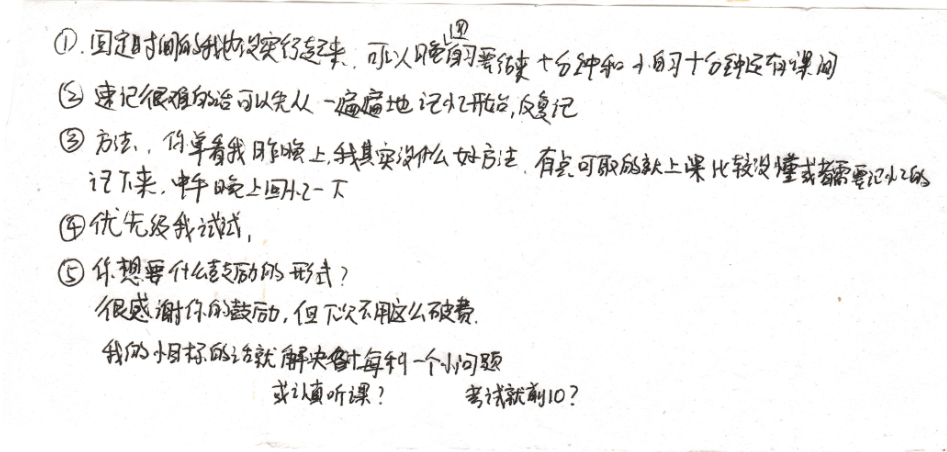 ①.固定时间的我也没实行起来.可以晚自习要结束十分钟和小自习十分钟还有课间
②速记很难的话可以先从一遍遍地记忆开始,反复记
③方法,你单看我昨晚上,我其实没什么好方法.有点可取的就上课比较没懂或者需要记忆的
记下来,中午晚上回忆一下
④优先级我试试,
⑤你想要什么鼓励的形式?
很感谢你的鼓励,但下次不用这么破费.
我的小目标的话就解决每科一个小问题
或认真听课? 考试就前10?